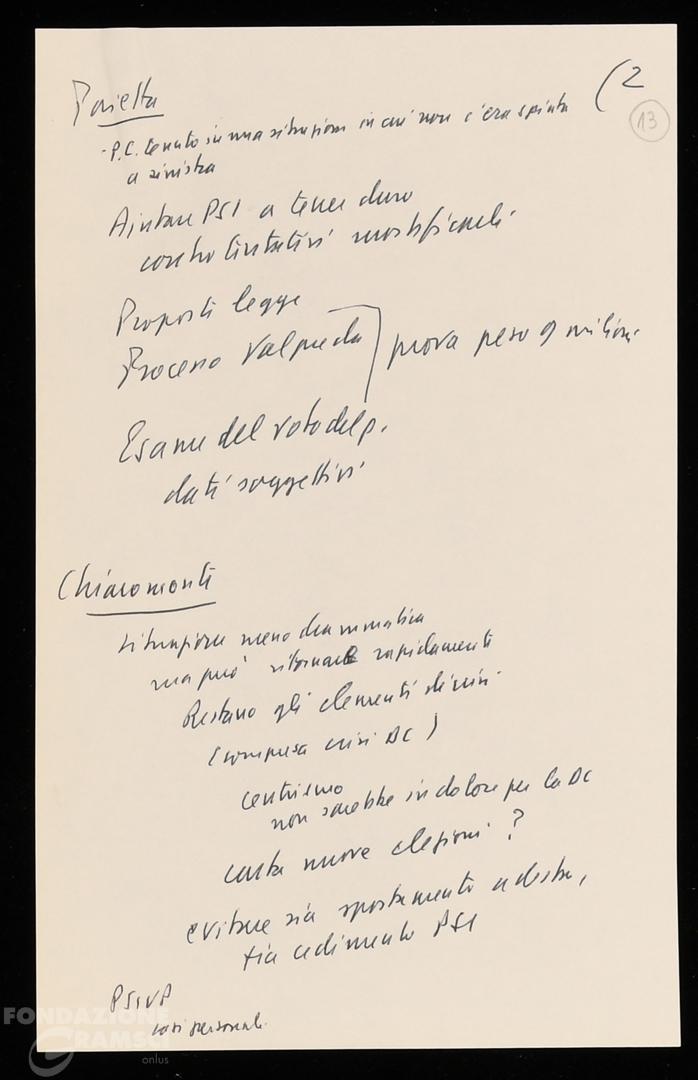 (2
13
Pajetta
- P.C. tenuto in una situazione in cui non c'era spinta
a sinistra
Aiutare PSI a tener duro
contro tentativi mortificanti
Proposte legge
Processo Valpreda
prova peso 9 milioni
Esame del voto del p.
dati soggettivi
Chiaromonte
situazione meno drammatica
ma può ritornare rapidamente
Restano gli elementi di crisi
(compresa crisi DC)
centrismo
non sarebbe indolore per la DC
nuove elezioni?
evitare sia spostamento a destra,
sia cedimento PSI
PSIUP
casi personali
FONDAZIONE
GRAMSCI
onlus